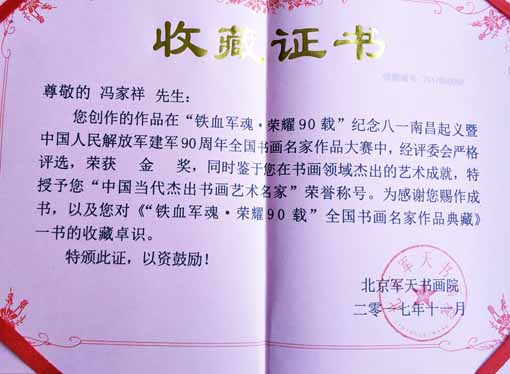 收藏证书
尊敬的 冯家祥 先生：
您创作的作品在“铁血军魂·荣耀90载”纪念八一南昌起义暨
中国人民解放军建军90周年全国书画名家作品大赛中，经评委会严格
评选，荣获 金 奖，同时鉴于您在书画领域杰出的艺术成就，特
授予您“中国当代杰出书画艺术名家”荣誉称号。为感谢您赐作成
书，以及您对《“铁血军魂·荣耀90载”全国书画名家作品典藏》
一书的收藏卓识。
特颁此证，以资鼓励！
北京军天书画院
二零一七年十一月